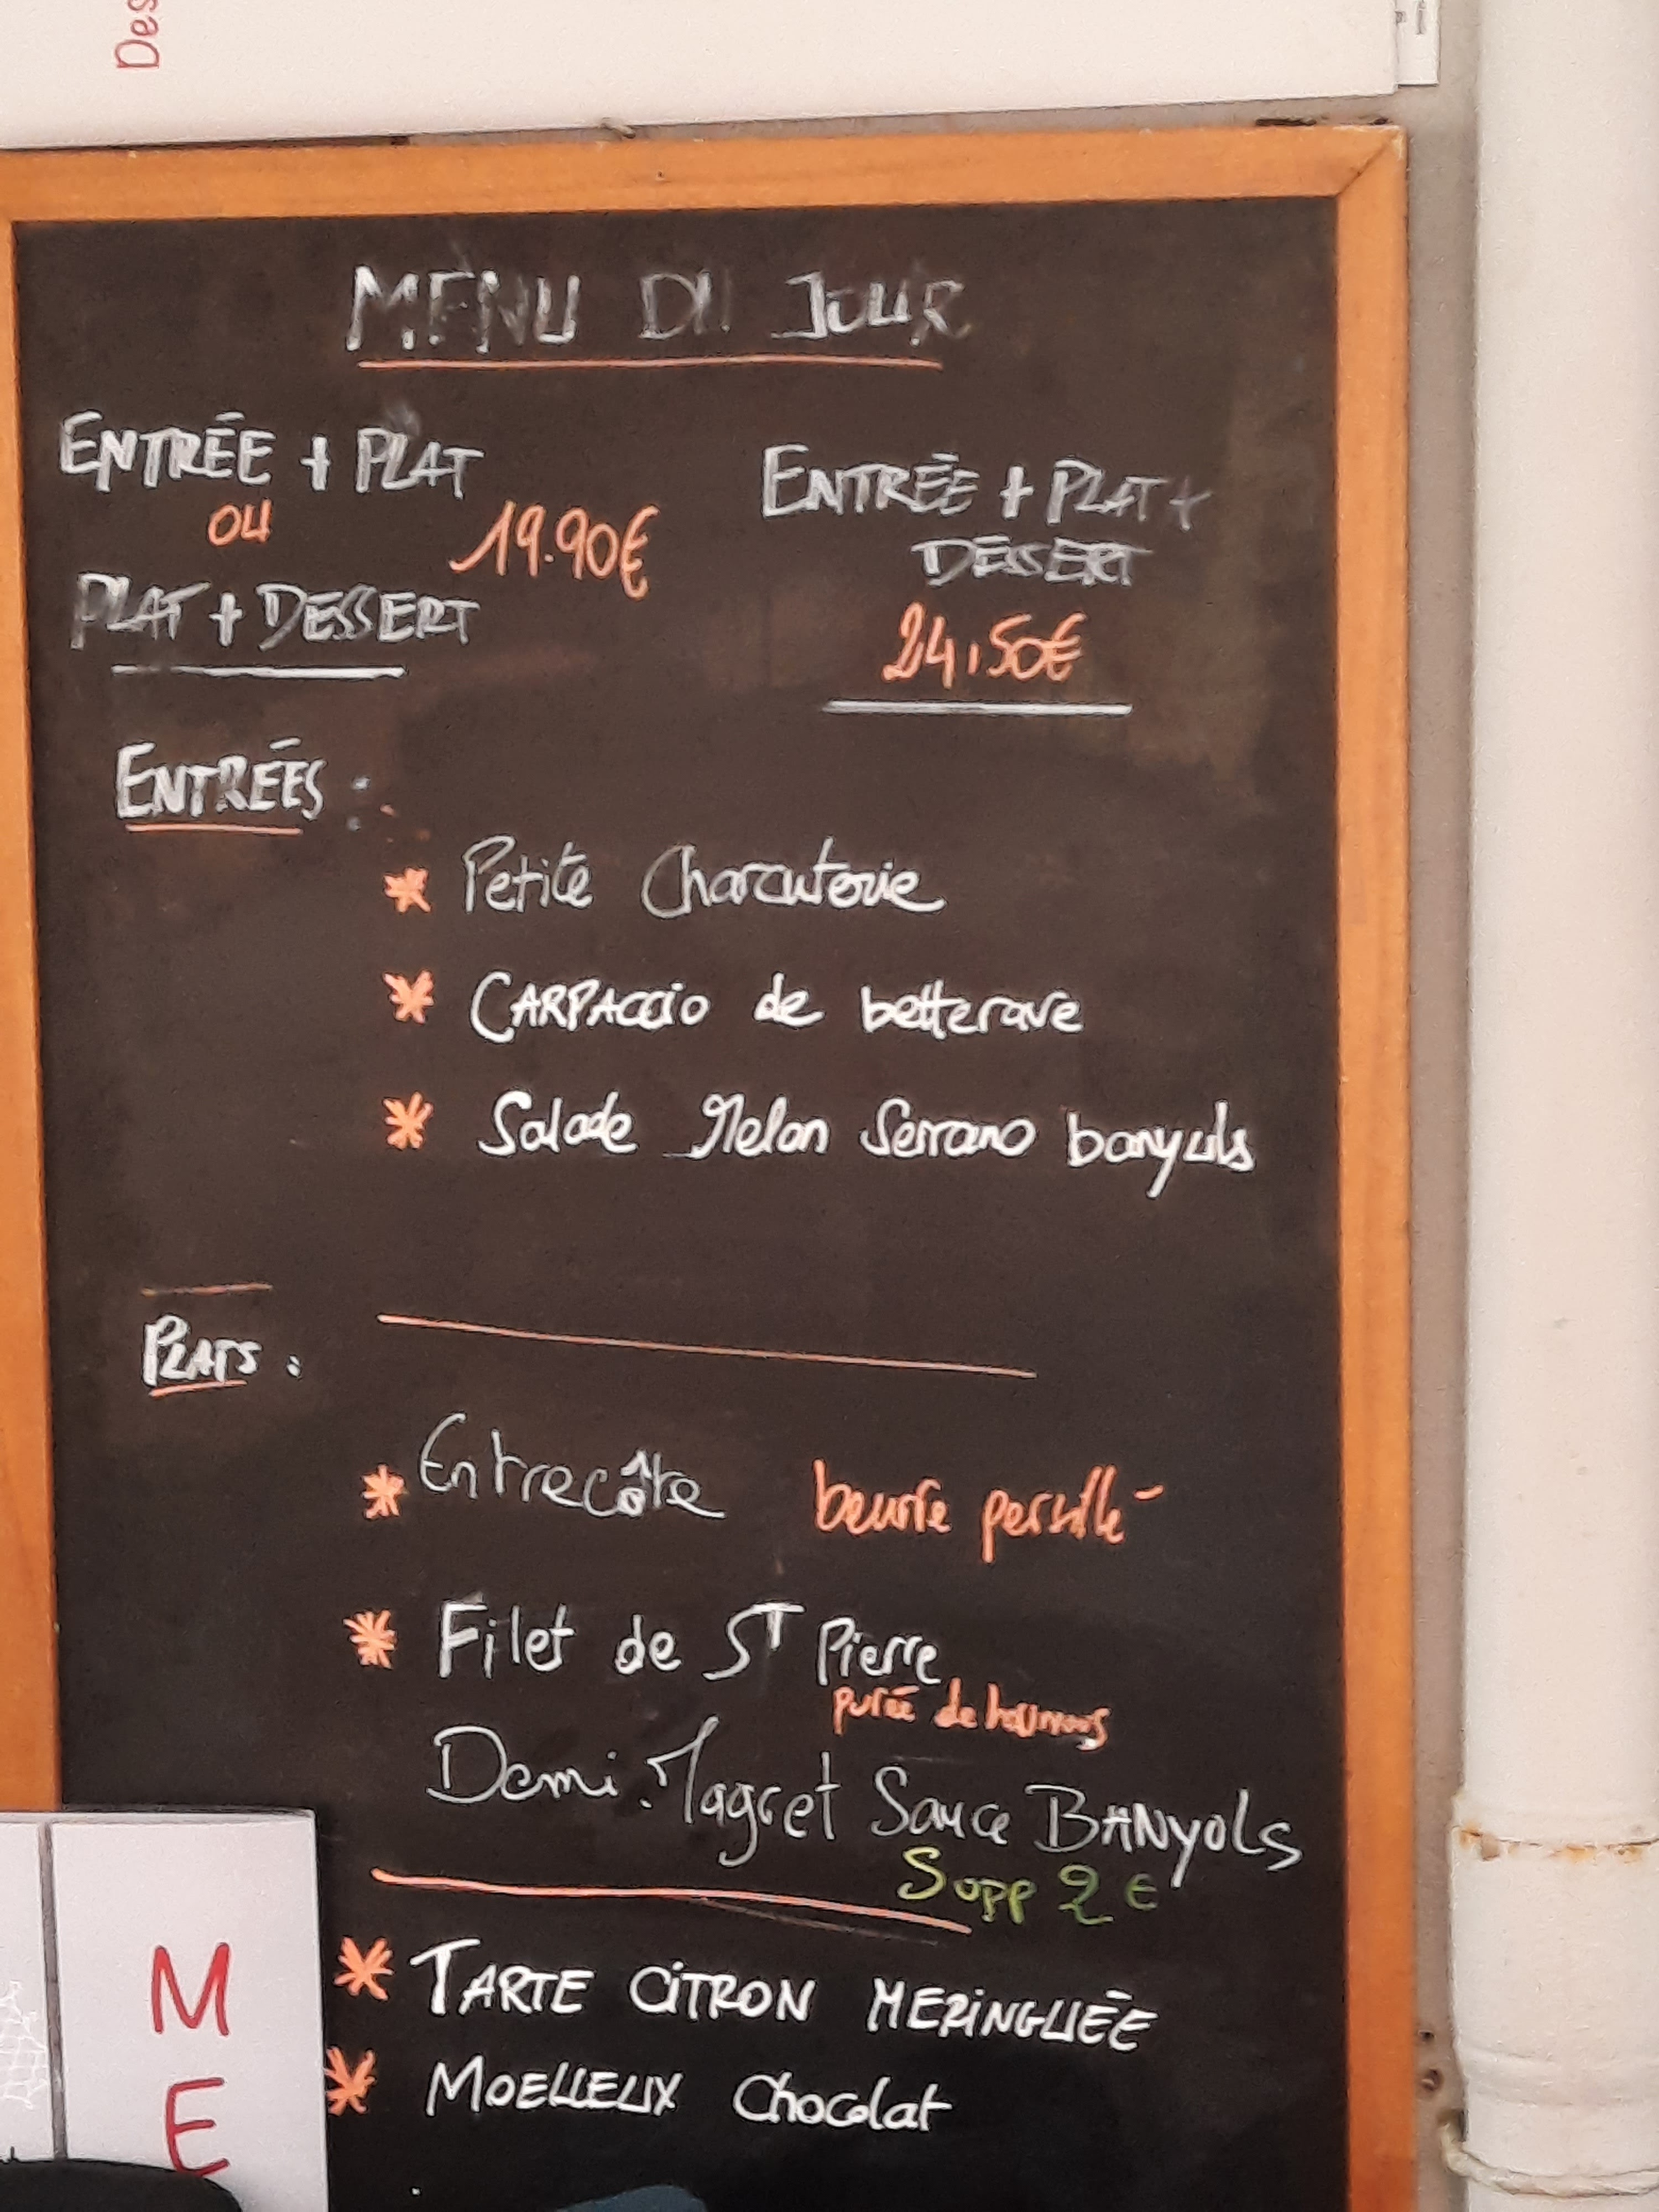 Des
MENU DU JOUR
ENTRÉE + PLAT
OU
PLAT + DESSERT
19.90€
ENTRÉE + PLAT +
DESSERT
24,50€
ENTRÉES :
* Petite Charcuterie
* CARPACCIO de betterave
* Salade Melon Serrano banyuls
PLATS :
* Entrecôte beurre persillé
* Filet de ST Pierre
purée de
Demi. Magret Sauce BANYOLS
Supp 2 €
* TARTE CITRON MERINGUÉE
* MOELLEUX Chocolat
M
E